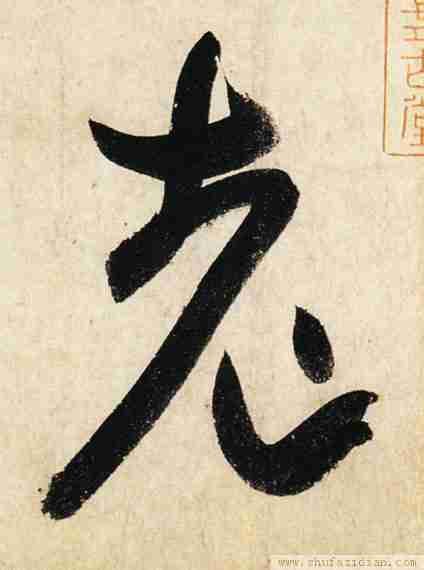 老
www.shufazidian.com